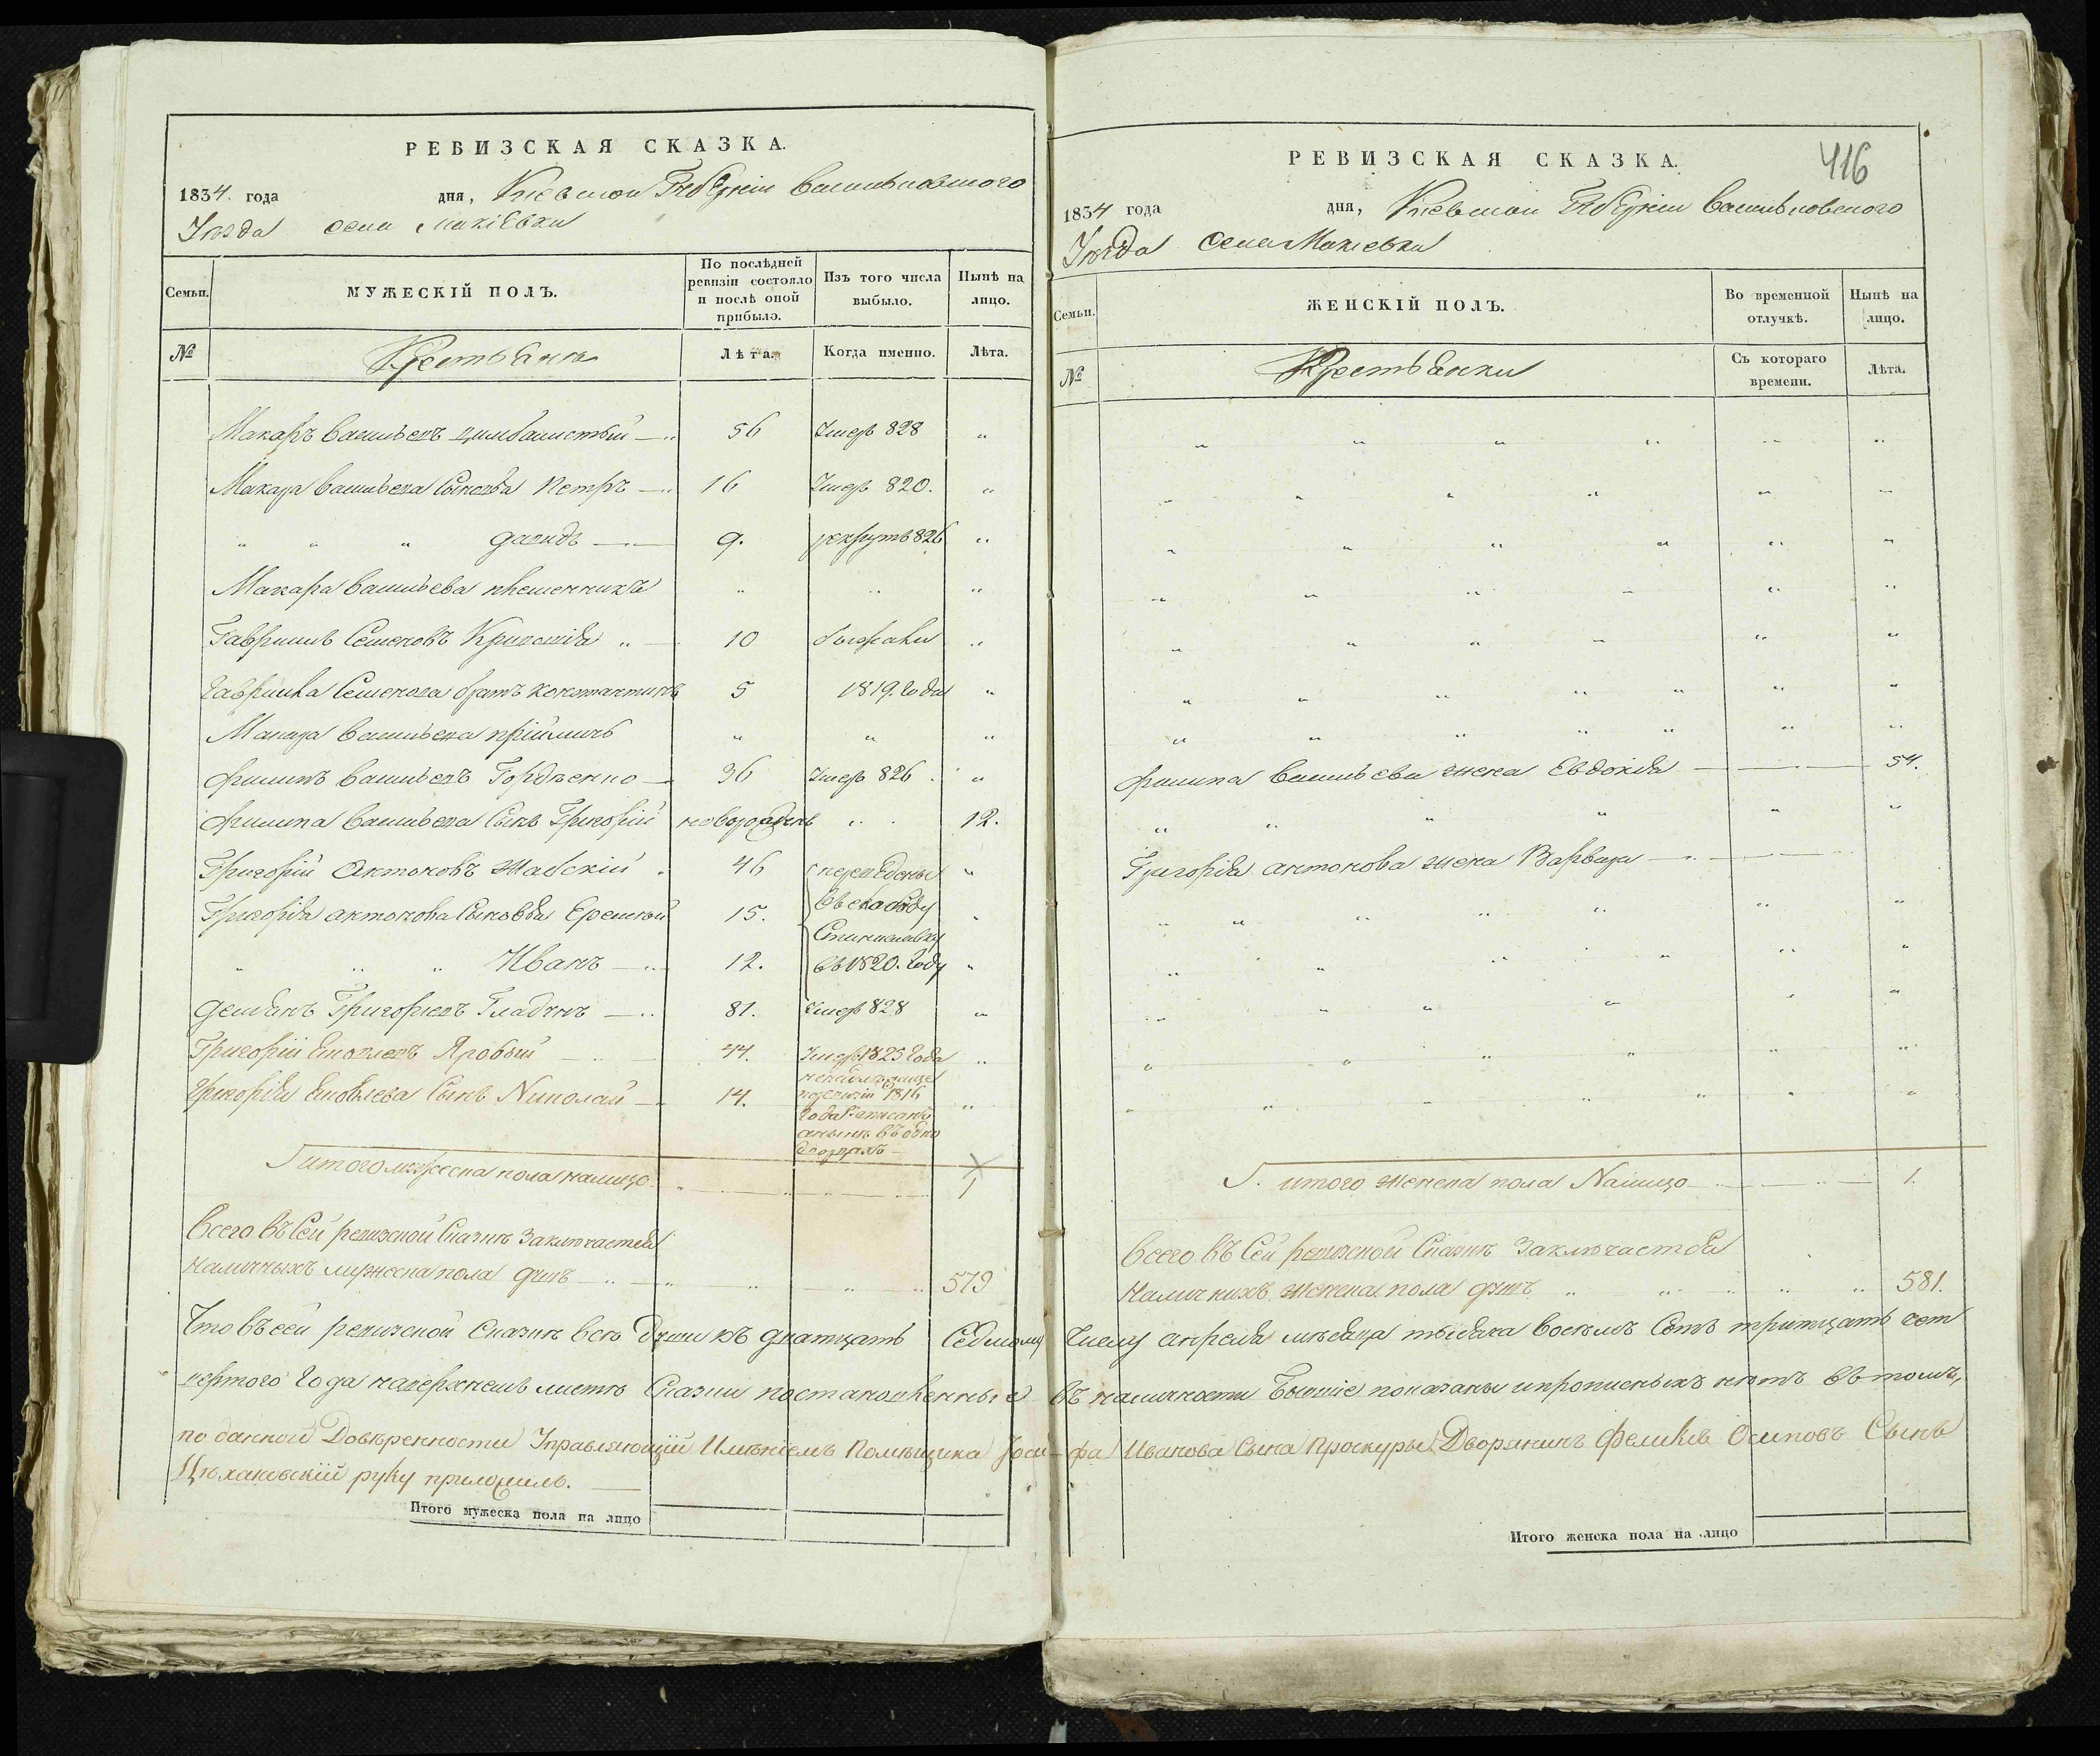 РЕВИЗСКАЯ СКАЗКА.
1834. года дня, Киевской Губерніи Васильковскаго
Уѣзда села Макіевки
Семьи.
МУЖЕСКІЙ ПОЛЪ.
По послѣдней ревизіи состояло и послѣ оной прибыло.
Изъ того числа выбыло.
Нынѣ на лицо.
№
Крестьянъ
Лѣта.
Когда именно.
Лѣта.
Макаръ Васильевъ Цимбалистый 56 Умеръ 828 "
Макара Васильева Сыновья Петръ 16 Умеръ 820. "
" " " Давидъ 9. рекрутъ 826 "
Макара Васильева племенники " " "
Гавриилъ Семеновъ 10 бѣжали "
Гавриила Семенова братъ Константинъ 5 1819. года "
Макара Васильева пріймичь " " "
Филипъ Васильевъ Гордѣенко 36 Умеръ 826 "
Филипа Васильева Сынъ Григорій новорожденъ " 12.
Григорій Антоновъ Жабскій 46 переведены "
Григорія Антонова Сыновья Еремѣй 15. въ слободу
Станиславку
" " " Иванъ 12. въ 1820. году "
Демьянъ Григорьевъ Гладунъ 81. Умеръ 828 "
Григорій Яковлевъ Яровый 44. Умеръ 1825 года "
Григорія Яковлева Сынъ Николай 14.
ревизіи 1816
года
итого мужеска пола налицо 1
Всего въ сей ревизской Сказкѣ заключается
Наличныхъ мужеска пола душъ 579
Что въ сей ревизской Сказкѣ всѣ души къ двадцать Седьмому
вертого года на верхнемъ листѣ Сказки постановленные
по данной Довѣренности Управляющій Имѣніемъ Помѣщика Іоси-
Цѣхановскій руку приложилъ.
Итого мужеска пола на лицо
416
РЕВИЗСКАЯ СКАЗКА.
1834 года дня, Киевской Губерніи Васильковскаго
Уѣзда села Макіевки
Семьи.
ЖЕНСКІЙ ПОЛЪ.
Во временной отлучкѣ.
Нынѣ на лицо.
№
Крестьянки
Съ котораго времени.
Лѣта.
Филипа Васильева жена Евдокія 54.
Григорія Антонова жена Варвара
итого женска пола Налицо 1.
Всего въ Сей ревизской Сказкѣ Заключается
Наличныхъ женска пола душъ 581.
Числу апреля мѣсяца тысяча восемь Сотъ тритцать чет
въ наличности бывшіе показаны и прописныхъ нѣтъ въ томъ,
фа Иванова Сына Проскуры Дворянинъ Феликсъ Осиповъ Сынъ
Итого женска пола на лицо